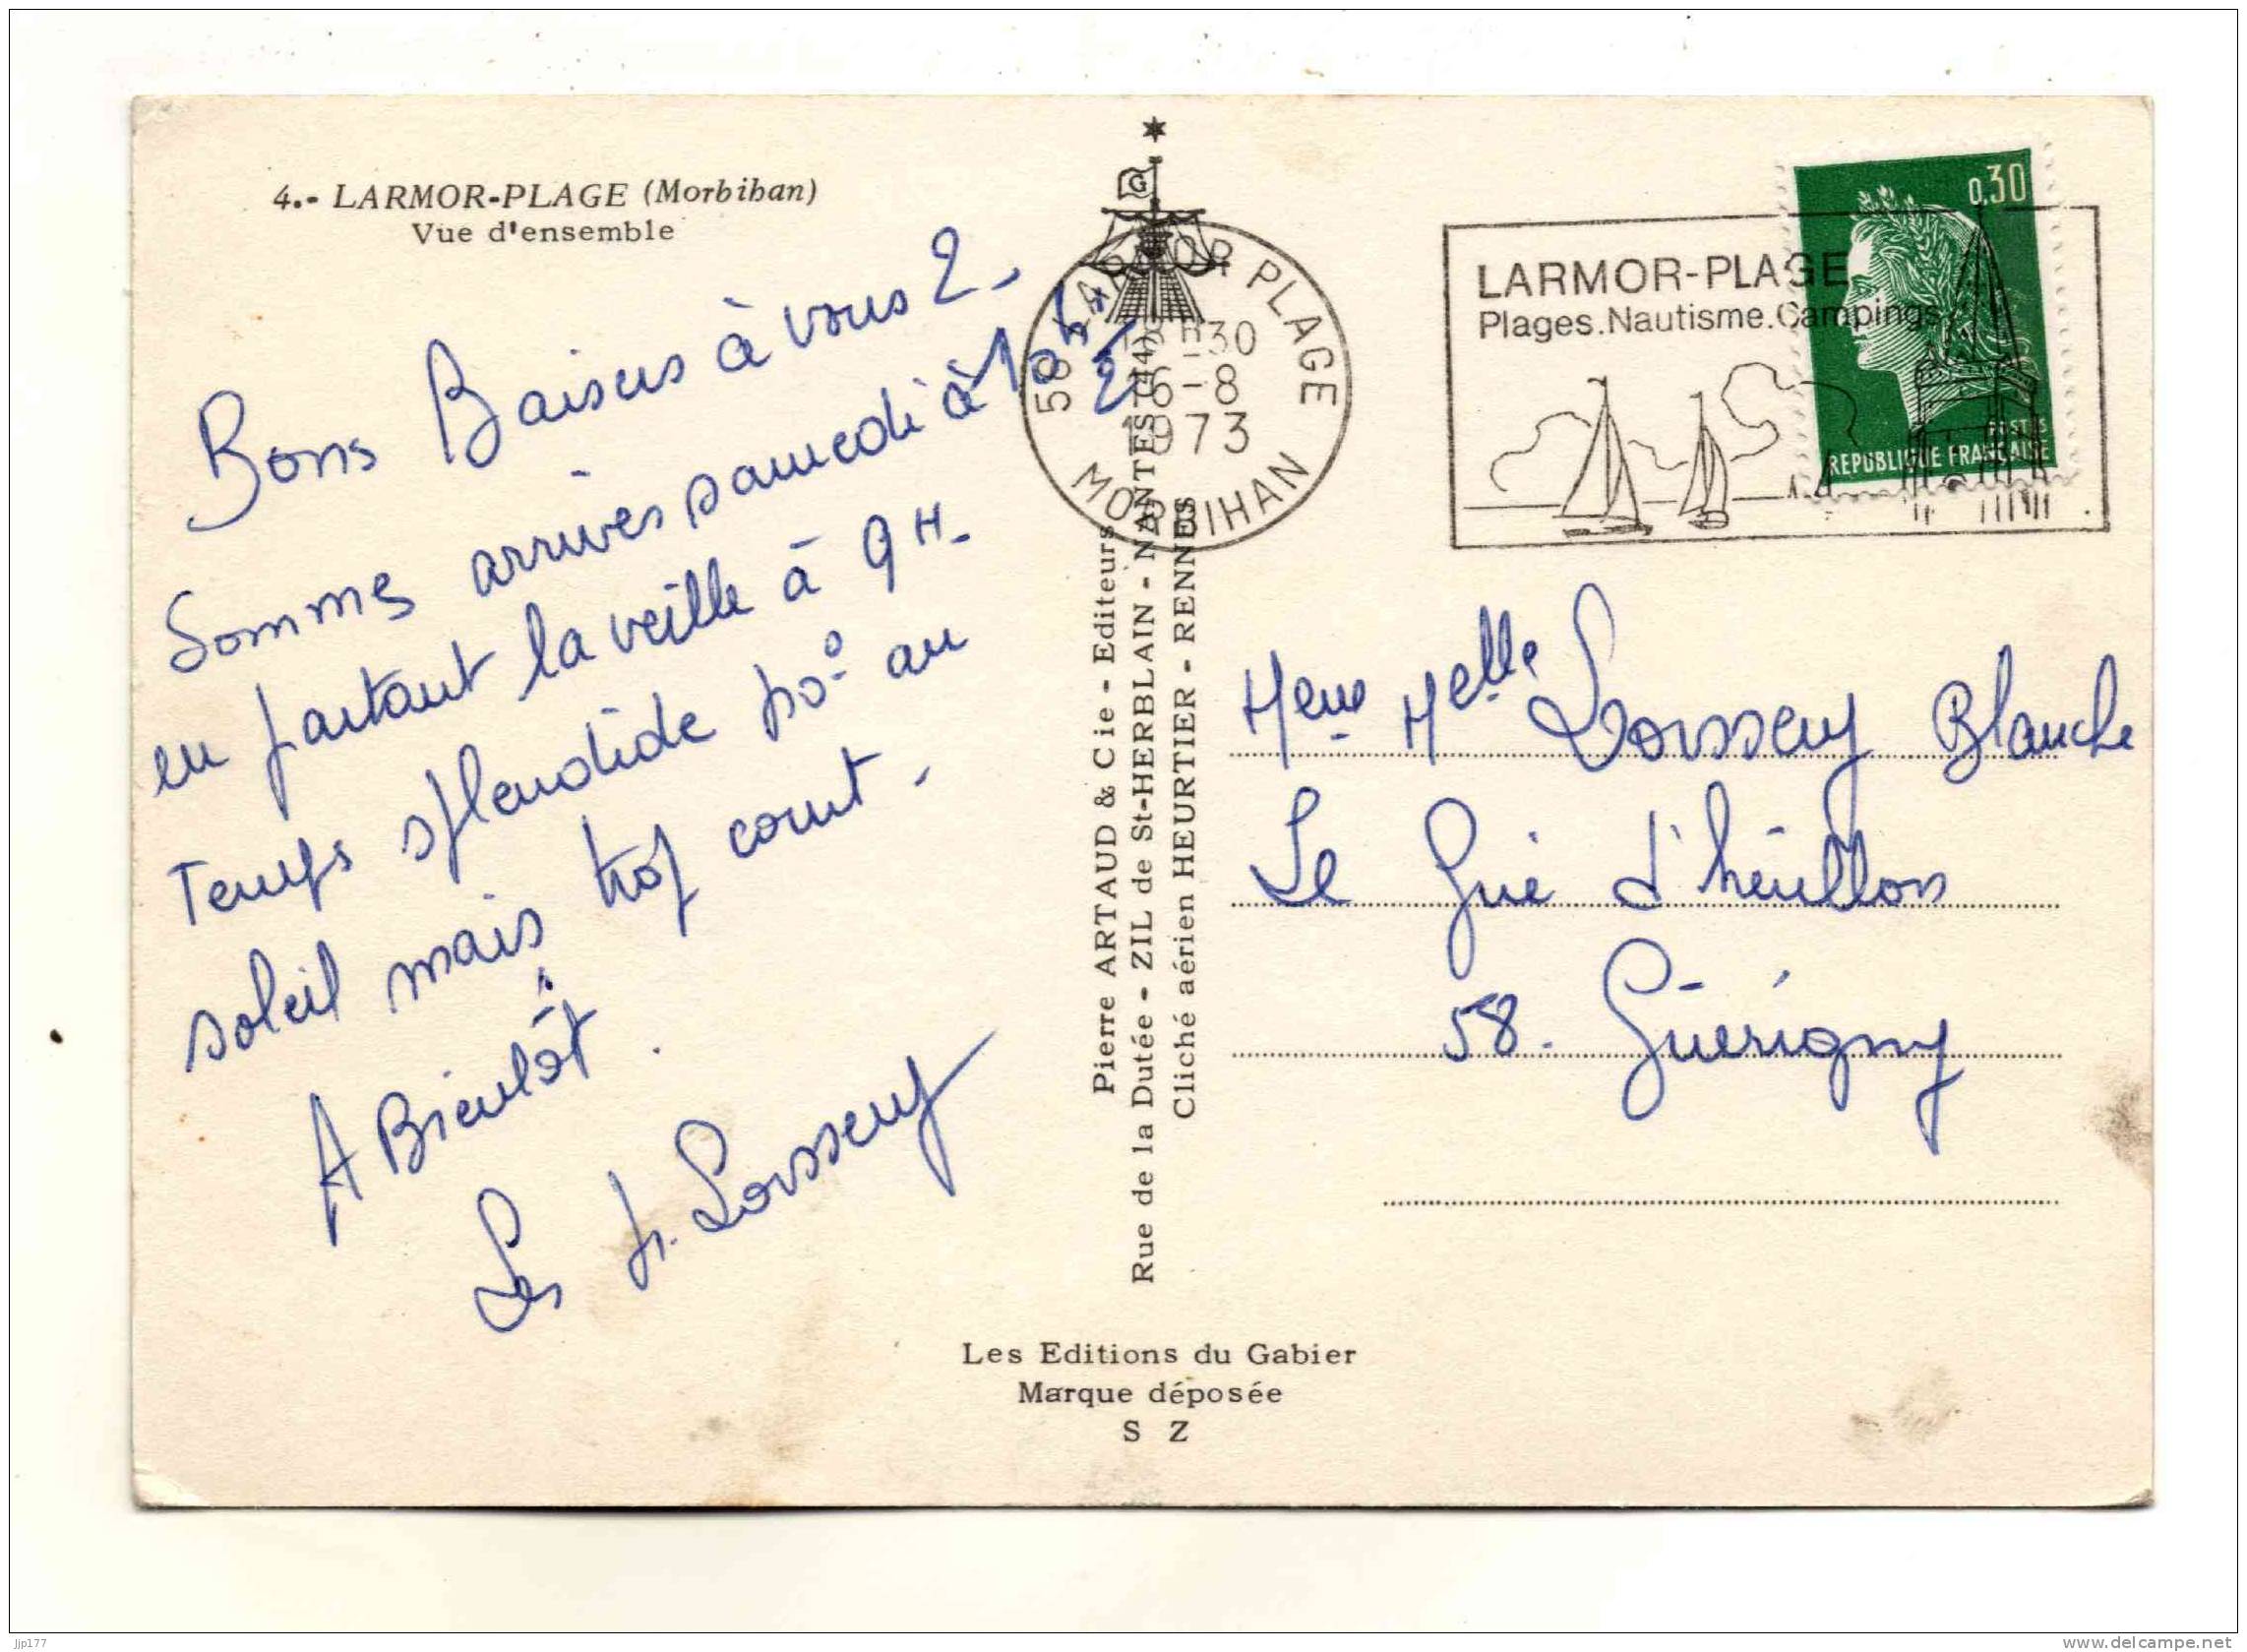 4.- LARMOR-PLAGE (Morbihan)
Vue d'ensemble
Bons Baisers à vous 2-
Sommes arrivés samedi à 10h 1/2
en partant la veille à 9H-
Temps splendide au
soleil mais trop court-
A Bientôt.
Les
56 LARMOR PLAGE
18H30
6-8
1973
MORBIHAN
LARMOR-PLAGE
Plages.Nautisme.Campings
0,30
POSTES
REPUBLIQUE FRANÇAISE
Pierre ARTAUD & Cie - Editeurs
Rue de la Dutée - ZIL de St-HERBLAIN - NANTES (44)
Cliché aérien HEURTIER - RENNES
Melle Blanche
Le Gué d'heuillon
58. Guérigny
Les Editions du Gabier
Marque déposée
S Z
jjp177
www.delcampe.net